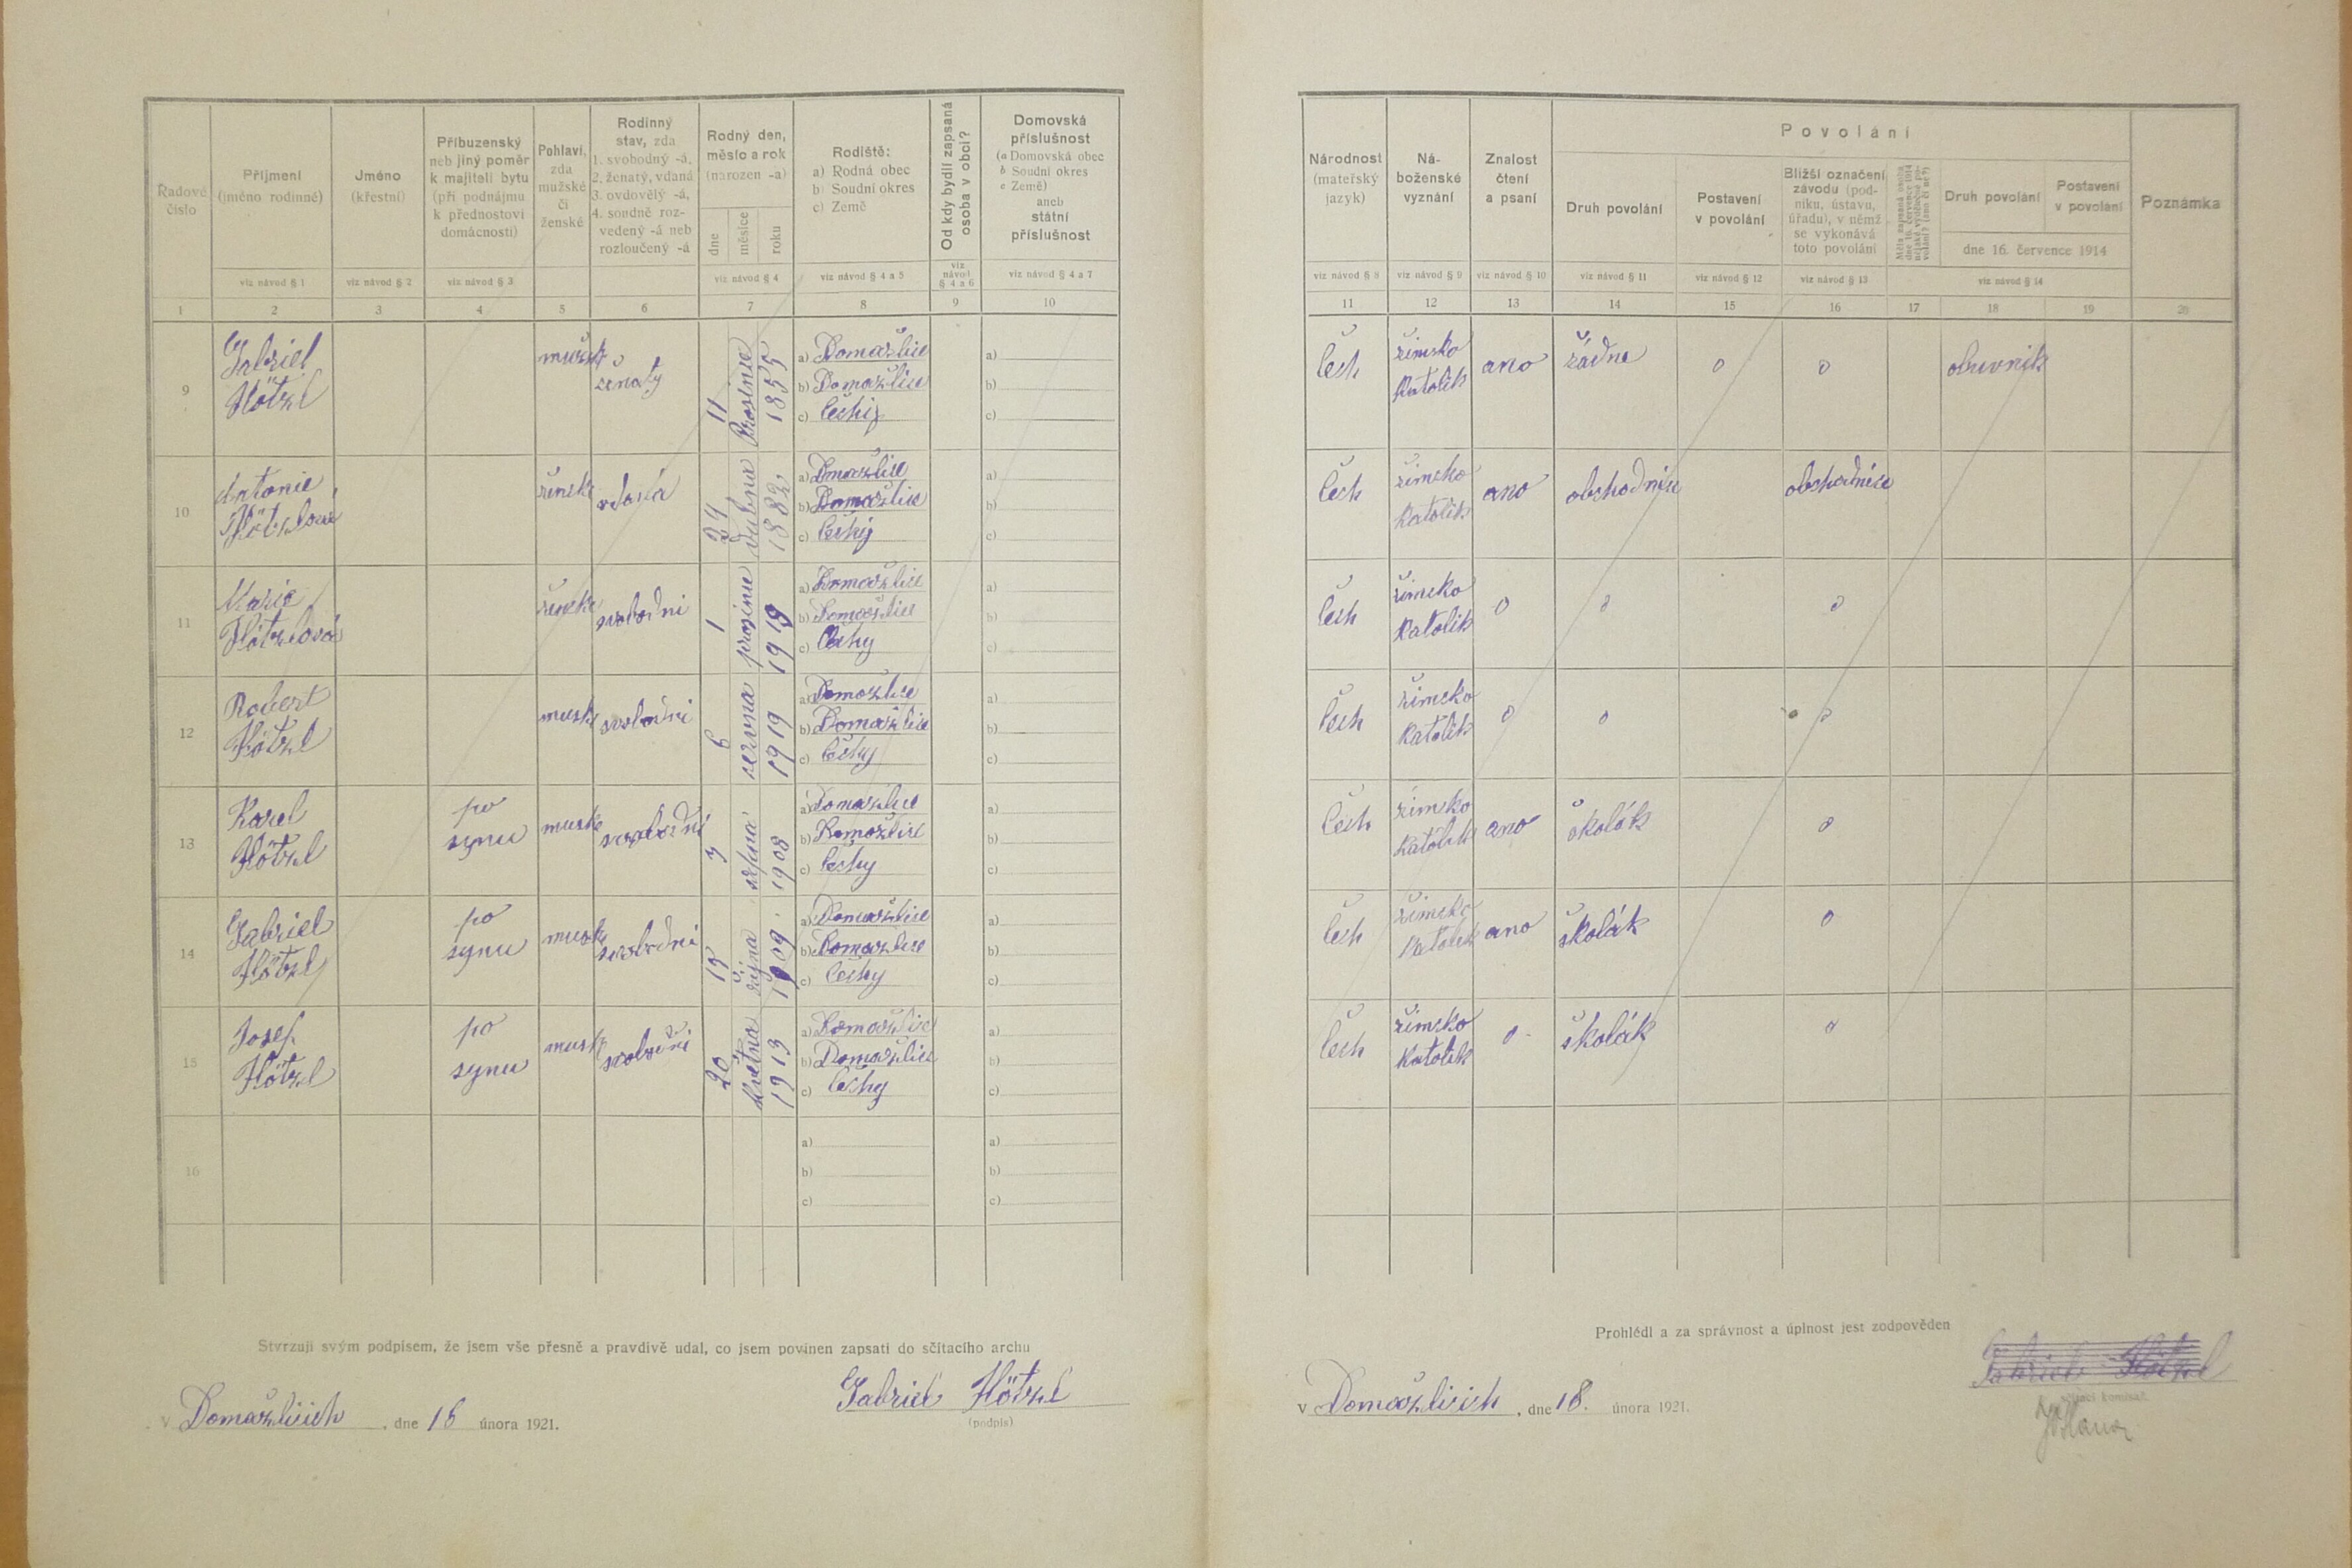 Řadové číslo
Příjmení
(jméno rodinné)
viz návod § 1
Jméno
(křestní)
viz návod § 2
Příbuzenský
neb jiný poměr
k majiteli bytu
(při podnájmu
k přednostovi
domácnosti)
viz návod § 3
Pohlaví,
zda
mužské
či
ženské
Rodinný
stav, zda
1. svobodný -á,
2. ženatý, vdaná
3. ovdovělý -á,
4. soudně roz-
vedený -á neb
rozloučený -á
Rodný den,
měsíc a rok
(narozen -a)
dne
měsíce
roku
viz návod § 4
Rodiště:
a) Rodná obec
b) Soudní okres
c) Země
viz návod § 4 a 5
Od kdy bydlí zapsaná
osoba v obci?
viz
návod
§ 4 a 6
Domovská
příslušnost
(a Domovská obec
b Soudní okres
c Země)
aneb
státní
příslušnost
viz návod § 4 a 7
1 2 3 4 5 6 7 8 9 10
9 Gabriel Hötzl mužsk ženatý 11 Prosince 1855
a) Domažlice a)
b) Domažlice b)
c) Čechy c)
10 Antonie Hötzlová žensk vdaná 24 dubna 1882
a) Dmažlice a)
b) Domažlice b)
c) Čechy c)
11 Marie Hötzlová žensk svobodni 1 prosince 1919
a) Domažlice a)
b) Domažlice b)
c) Čechy c)
12 Robert Hötzl musk svobodni 6 června 1919
a) Domažlice a)
b) Domažlice b)
c) Čechy c)
13 Karel Hötzl po synu musk svobodni srpna 1908
a) Domažlice a)
b) Domažlice b)
c) Čechy c)
14 Gabriel Hötzl po synu musk svobodni 15 října 1909
a) Domažlice a)
b) Domažlice b)
c) Čechy c)
15 Josef Hötzl po synu musk svobodni 20 května 1913
a) Domažlice a)
b) Domažlice b)
c) Čechy c)
16
a) a)
b) b)
c) c)
Stvrzuji svým podpisem, že jsem vše přesně a pravdivě udal, co jsem povinen zapsati do sčítacího archu
V Domažlicích, dne 18 února 1921.
Gabriel Hötzl
(podpis)
Národnost
(mateřský
jazyk)
viz návod § 8
Ná-
boženské
vyznání
viz návod § 9
Znalost
čtení
a psaní
viz návod § 10
Povolání
Druh povolání
viz návod § 11
Postavení
v povolání
viz návod § 12
Bližší označení
závodu (pod-
niku, ústavu,
úřadu), v němž
se vykonává
toto povolání
viz návod § 13
Druh povolání
Postavení
v povolání
dne 16. července 1914
viz návod § 14
Poznámka
11 12 13 14 15 16 17 18 19 20
Čech římsko katolík ano žádne o o obuvník
Čech římsko katolík ano obchodnice obchodnice
Čech římsko katolík o o o
Čech římsko katolík o o o
Čech římsko katolík ano školák o
Čech římsko katolík ano školák o
Čech římsko katolík o školák o
Prohlédl a za správnost a úplnost jest zodpověden
Gabriel Hötzl
sčítací komisař.
v Domažlicích, dne 18. února 1921.